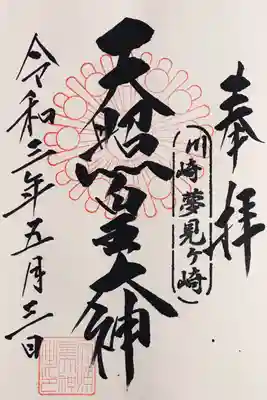 奉拝
(川崎夢見ヶ崎)
天照皇大神
令和三年五月三日